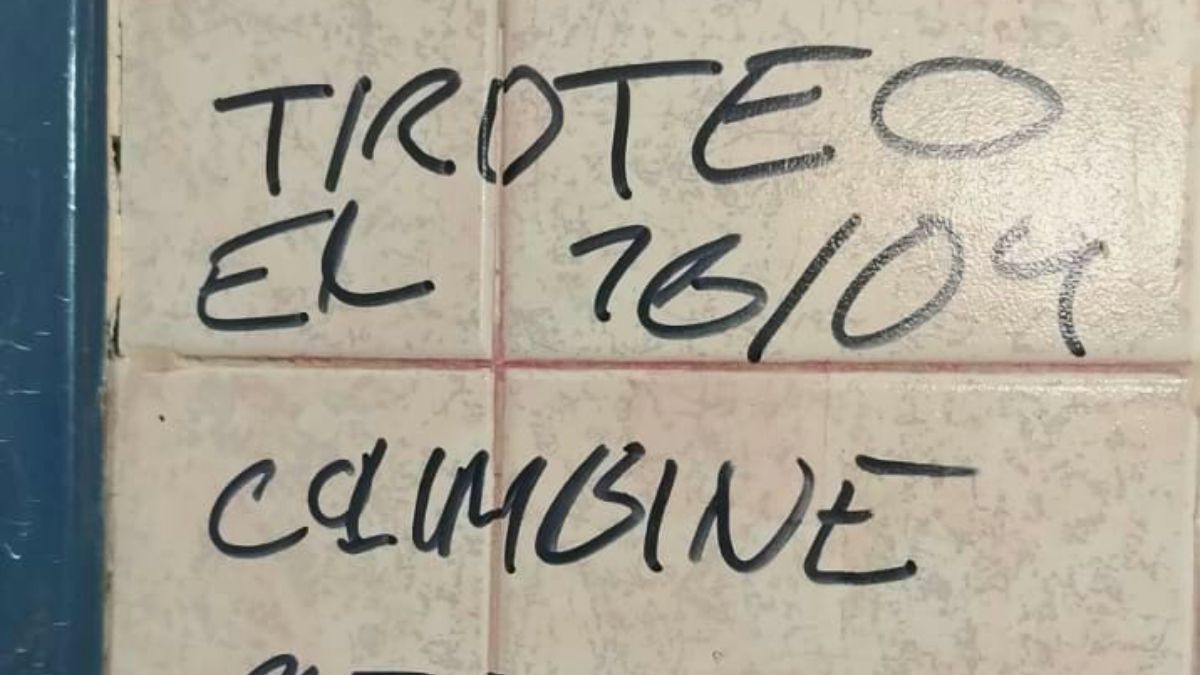 TIROTEO
EL 16/04
COLUMBINE